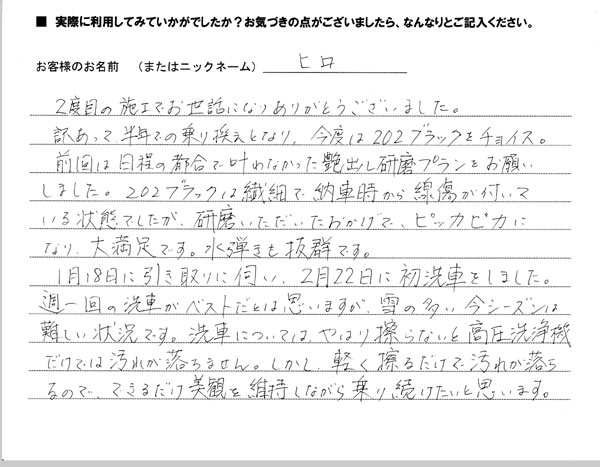 ■ 実際に利用してみていかがでしたか？お気づきの点がございましたら、なんなりとご記入ください。
お客様のお名前 （またはニックネーム） ヒロ
2度目の施工でお世話になりありがとうございました。
訳あって半年での乗り換えとなり、今度は202ブラックをチョイス。
前回は日程の都合で叶わなかった艶出し研磨プランをお願い
しました。202ブラックは繊細で納車時から線傷が付いて
いる状態でしたが、研磨いただいたおかげで、ピッカピカに
なり、大満足です。水弾きも抜群です。
1月18日に引き取りに伺い、2月22日に初洗車をしました。
週一回の洗車がベストだとは思いますが、雪の多い今シーズンは
難しい状況です。洗車についてはやはり擦らないと高圧洗浄機
だけでは汚れが落ちません。しかし、軽く擦るだけで汚れが落ち
るので、できるだけ美観を維持しながら乗り続けたいと思います。